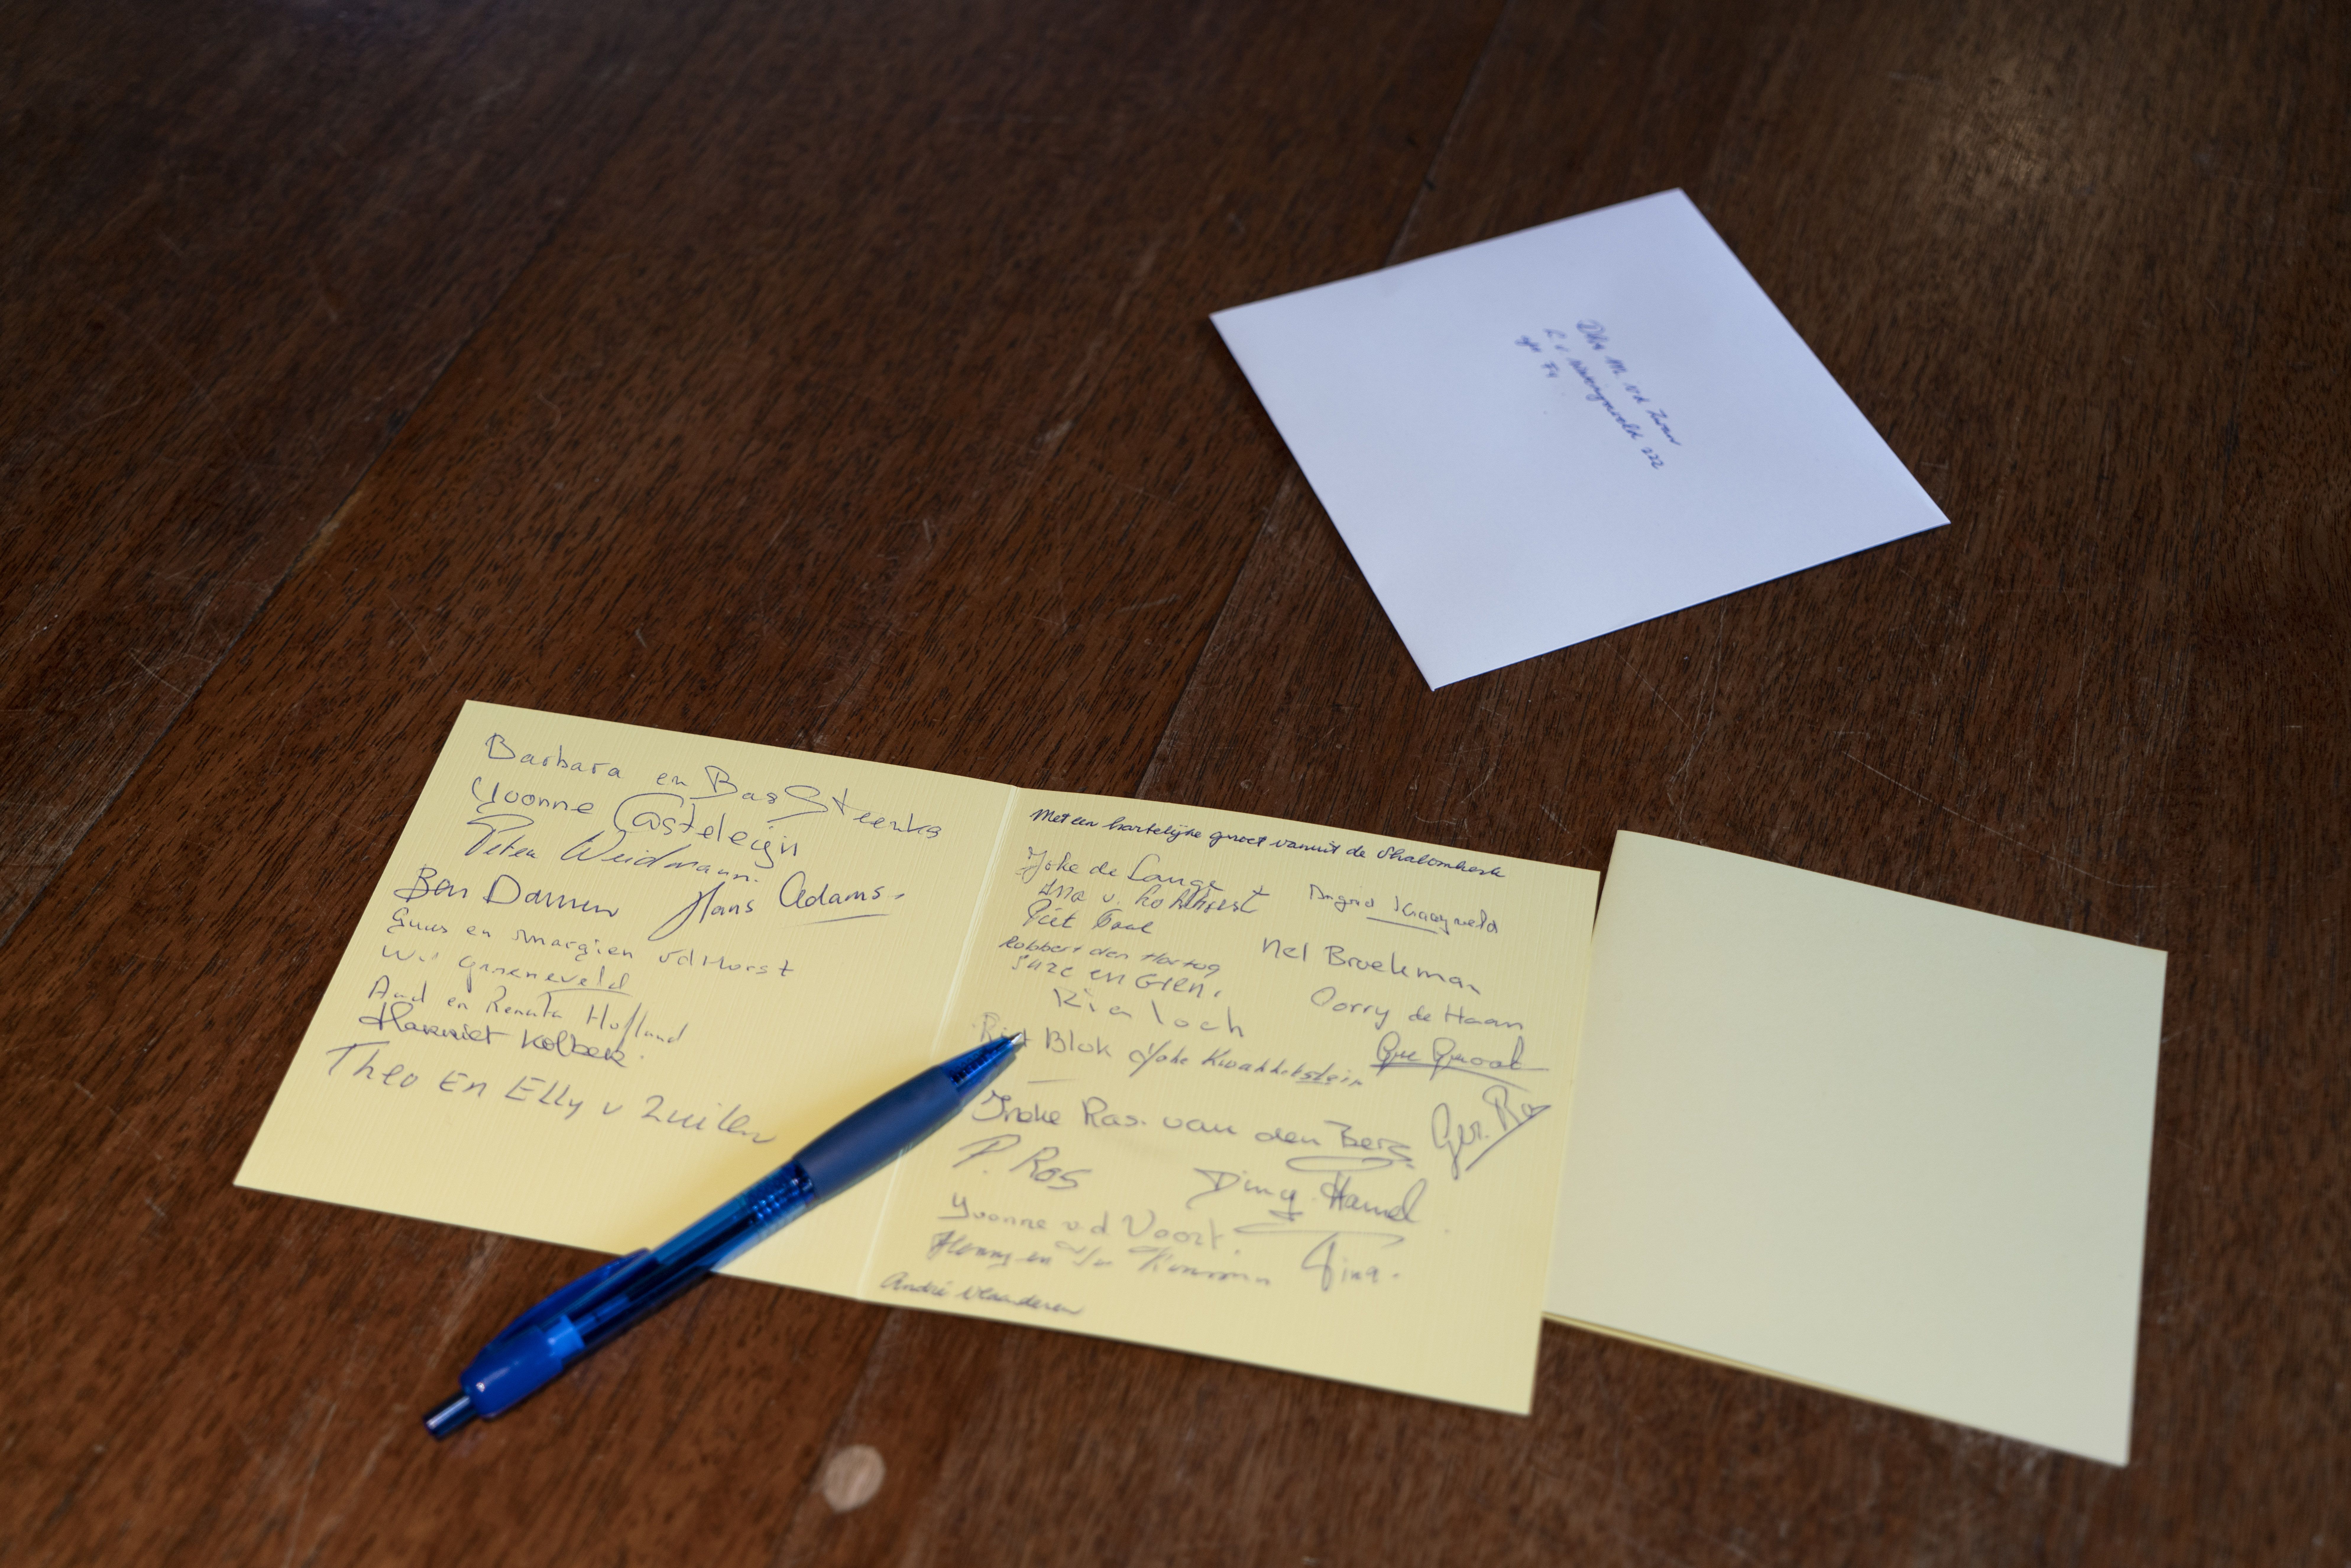 Barbara en Bas Steenks
Yvonne Casteleijn
Peter Weidmann.
Ben Damen Hans Adams.
Guus en Margien vd Horst
Wil Groeneveld
Aad en Renata Hofland
Harriet Kolbek.
Theo En Elly v Zuilen
Met een hartelijke groet vanuit de Shalomkerk
Joke de Lange
Ingrid Kraayveld
Ina v.
Piet
Nel Broekman
Robbert den Hartog
Suze en Gien.
Corry de Haan
Ria Loch
Riet Blok Joke Kwakkelstein
Ineke Ras. van den Berg
Ger. Ras
P. Ros
Diny Hamel
Yvonne v.d Voort.
Henny en
Tina.
André Vlaanderen
M. v.d
222